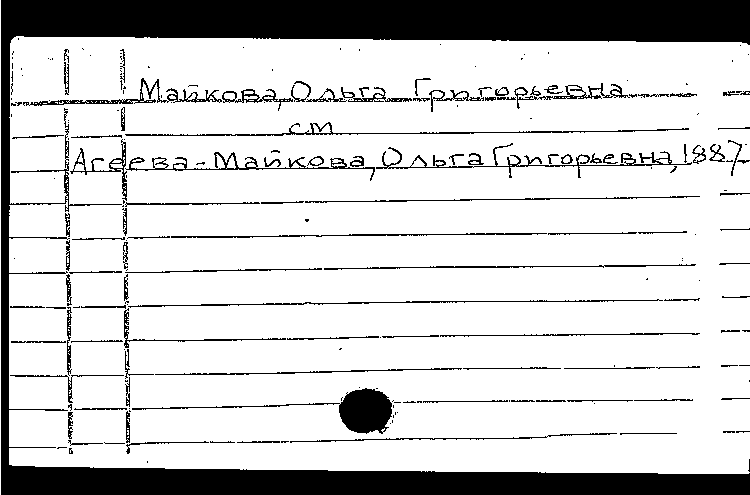 Майкова, Ольга Григорьевна
см
Агеева-Майкова, Ольга Григорьевна, 1887-